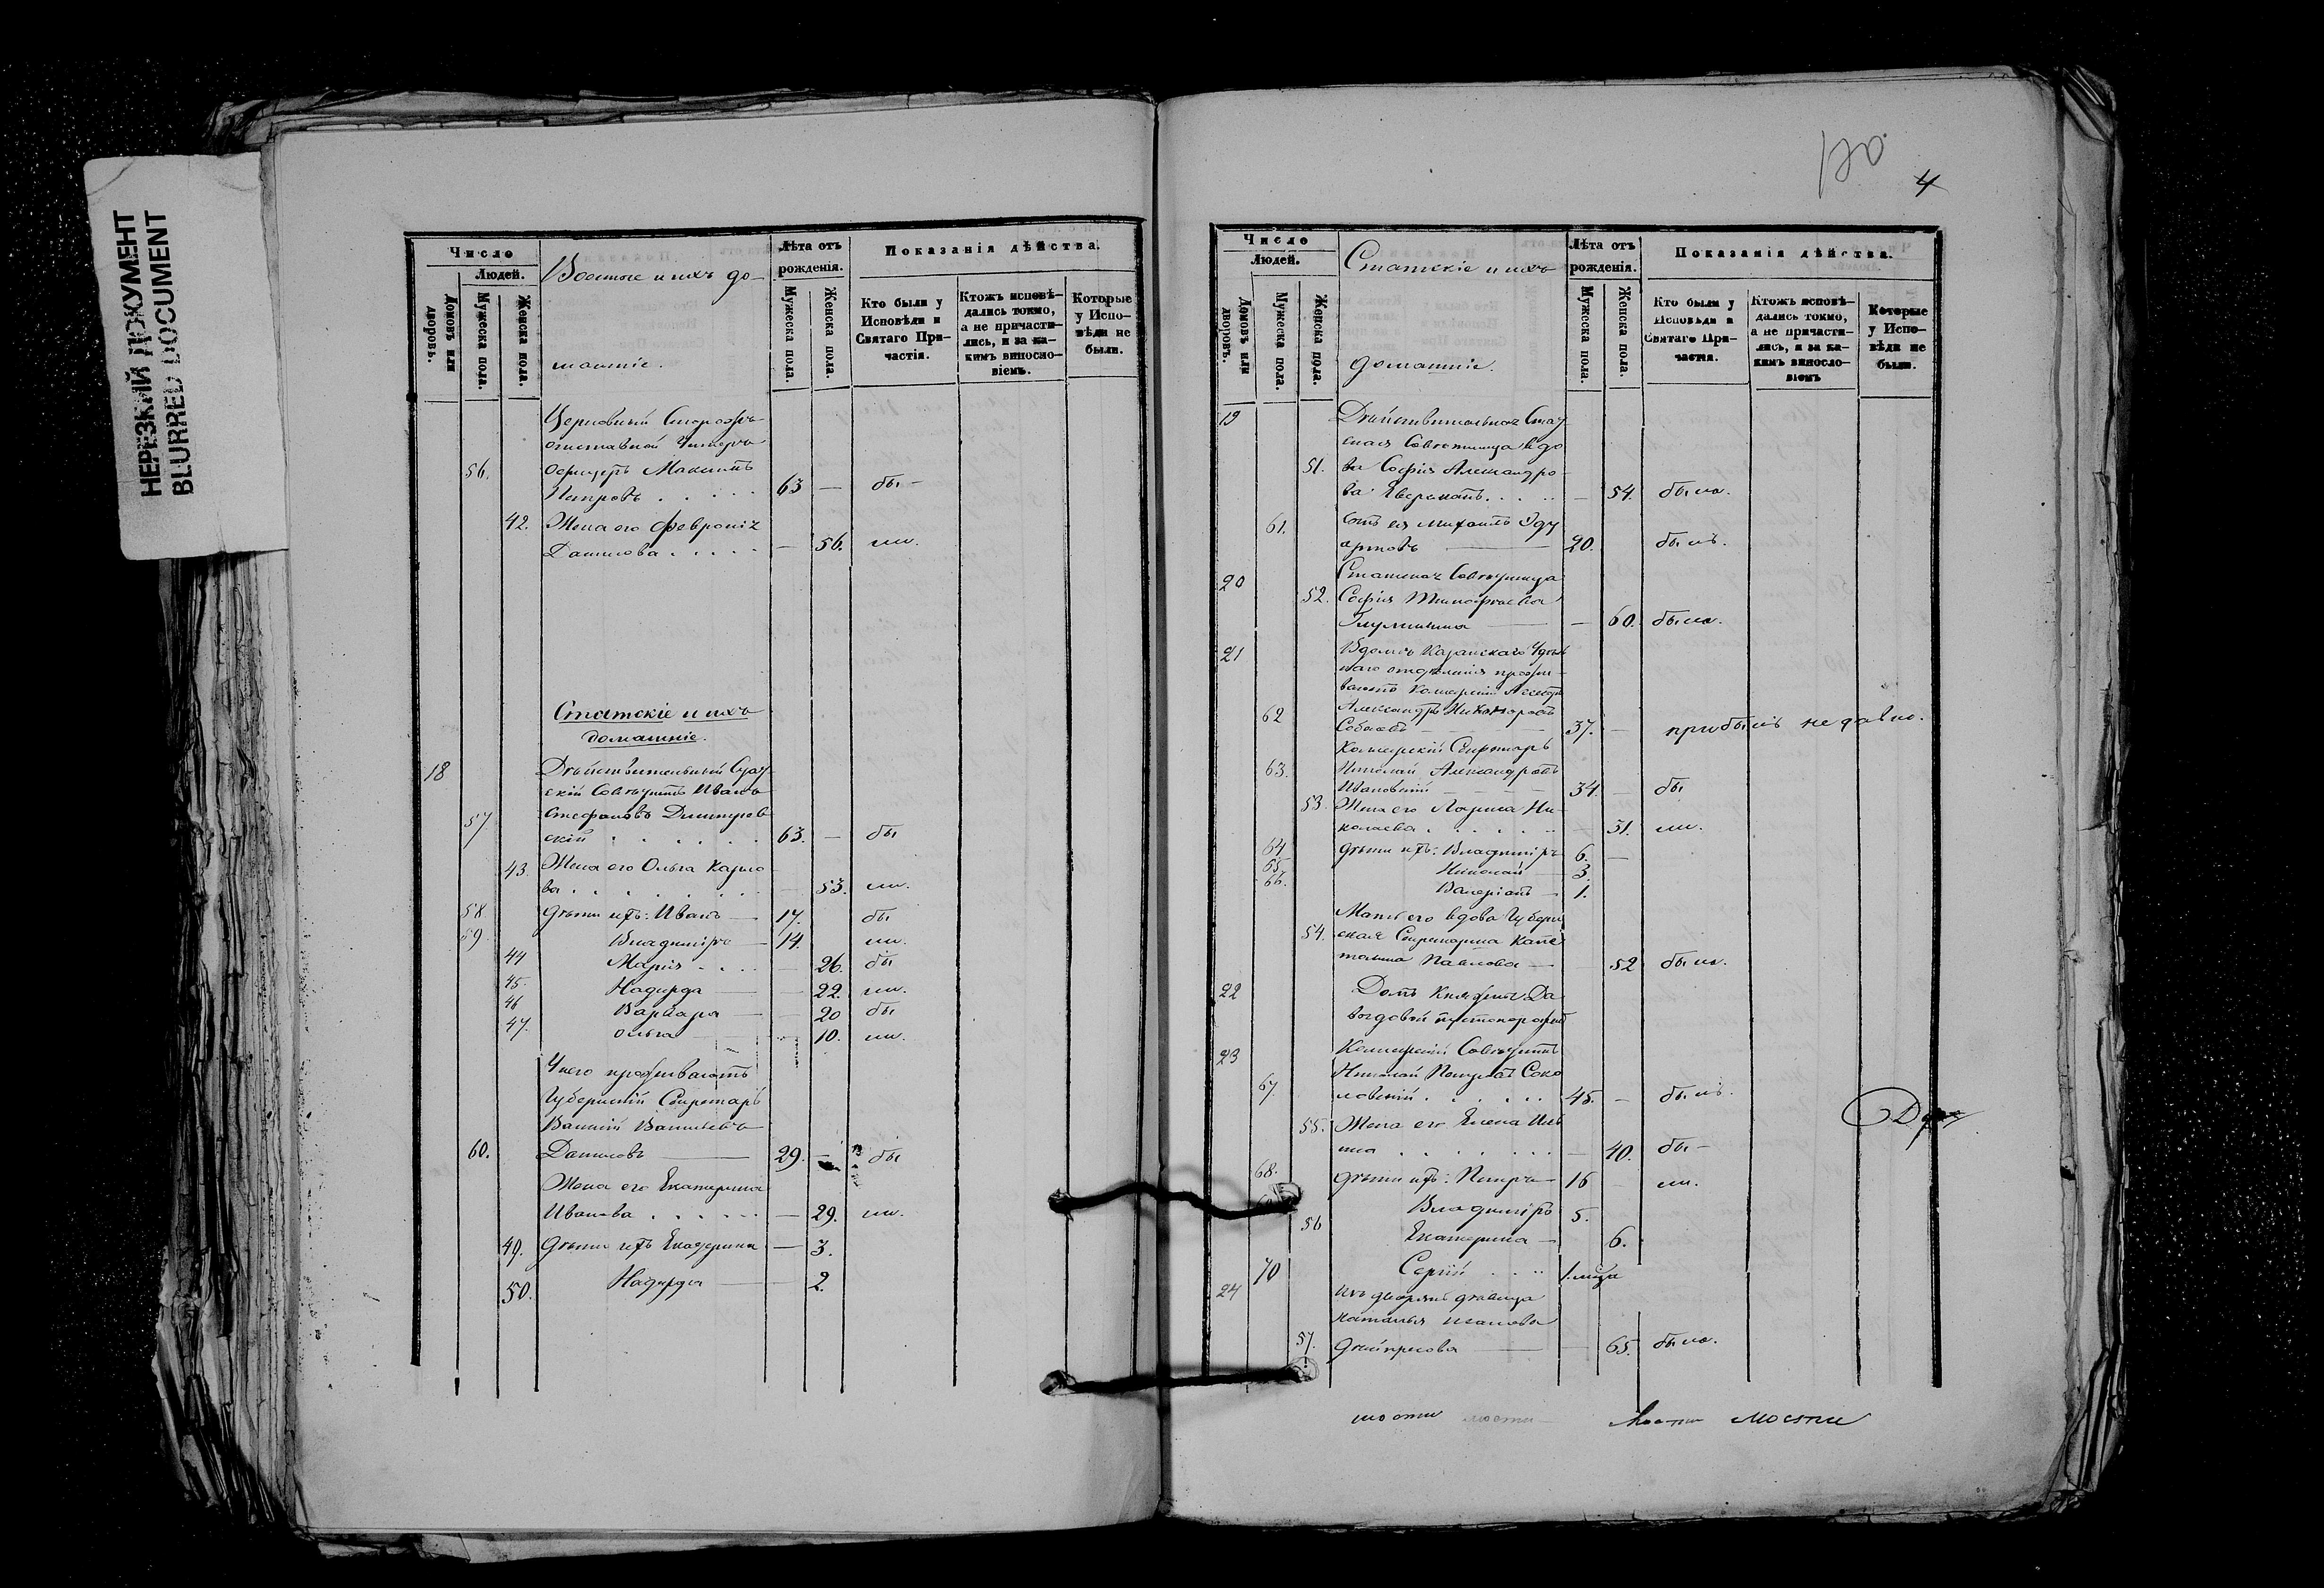 НЕРЕЗКИЙ ДОКУМЕНТ
BLURRED DOCUMENT
Число
Людей.
Домовъ или дворовъ.
Мужеска пола.
Женска пола.
Военные и ихъ до-
машніе.
Лѣта отъ рожденія.
Мужеска пола.
Женска пола.
Показанія дѣйства.
Кто были у Исповѣди и Святаго При-частія.
Ктожъ исповѣ-дались токмо, а не причасти-лись, и за ка-кимъ виносло-віемъ.
Которые у Испо-вѣди не были.
Церковный Сторожъ
отставной Унтеръ
56. офицеръ Максимъ
Петровъ . . . . . 63 — бы-
42. Жена его Февронія
Данилова . . . . . — 56. ли.
Статскіе и ихъ
домашніе.
18 Дѣйствительный Стат
скій Совѣтникъ Иванъ
57 Стефановъ Дмитрев
скій . . . . . . 63. — бы
43. Жена его Ольга Карло
ва . . . . . . . — 53. ли.
58 дѣти ихъ: Иванъ — 17. бы
59 Владиміръ — 14. ли.
44 Марія . . . . — 26. бы
45. Надежда — 22. ли.
46 Варвара — 20 бы
47. Ольга — 10. ли.
У него проживаютъ
Губернскій Секретарь
Василій Васильевъ
60. Даниловъ — 29. — бы
Жена его Екатерина
Иванова . . . . . . — 29. ли.
49. дѣти ихъ Екатерина — 3.
50. Надежда — 2.
120
4
Число
Людей.
Домовъ или дворовъ.
Мужеска пола.
Женска пола.
Статскіе и ихъ
домашніе.
Лѣта отъ рожденія.
Мужеска пола.
Женска пола.
Показанія дѣйства.
Кто были у Исповѣди и Святаго При-частія.
Ктожъ исповѣ-дались токмо, а не причасти-лись, и за ка-кимъ виносло-віемъ
Которые у Испо-вѣди не были.
19 Дѣйствительная Стат
ская Совѣтница вдо
51. ва Софія Александро
ва . . . — 54. была.
61. Сынъ ея Михаилъ Эду
ардовъ — 20. былъ.
20 Статская Совѣтница
52. Софія Тимофеева
— 60. была.
21 Въ домѣ Казанскаго Удѣль
наго отдѣленія прожи-
ваютъ
62 Александръ
37. — прибылъ недавно.
Коллежскій Секретарь
63. Николай Александровъ
Ивановскій — 34. — бы
53. Жена его Лариса Ни-
колаева . . . . . . — 31. ли.
64 дѣти ихъ: Владиміръ 6. —
65 Николай — 3.
66. Валеріанъ — 1.
Мать его вдова Губерн
54. ская Секретарша Капи
толина Павлова — 52 была.
22 Домъ Княгини Да
выдовой
23 Коллежскій Совѣтникъ
67. Николай Петровъ Соко
ловскій . . . . . . 45. — былъ.
55. Жена его Елена Иль
ина . . . . . . . — 40. бы-
68. дѣти ихъ: Петръ — 16 — ли.
Владиміръ 5.
56 Екатерина — 6.
70 Сергій . . .
24 Изъ дворянъ дѣвица
Наталья Иванова
57. — 65. была.